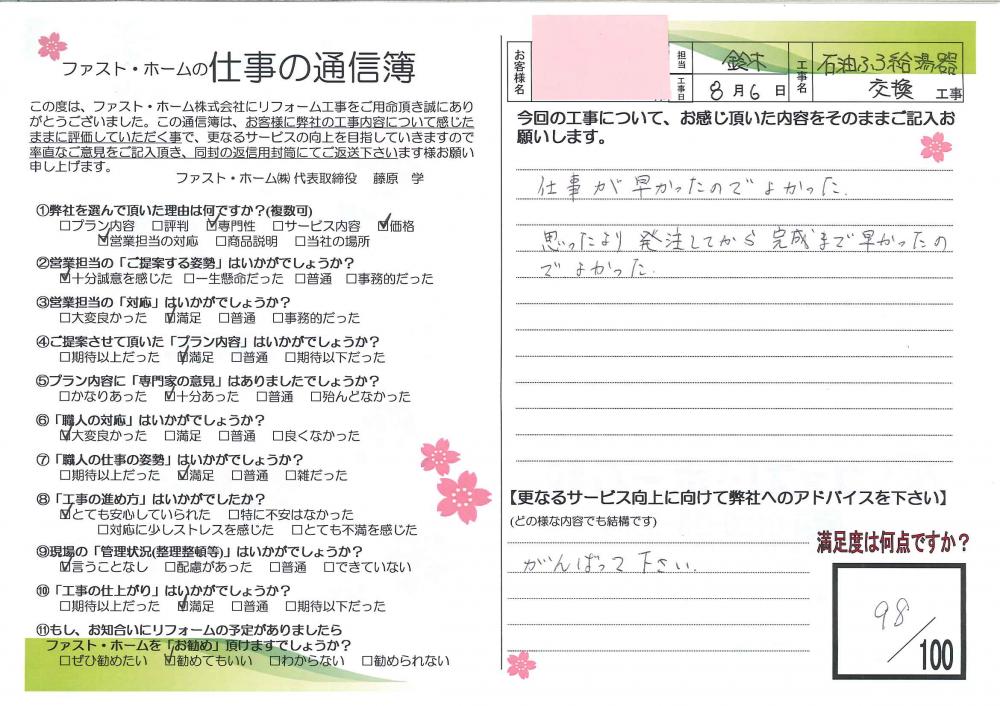 ファスト・ホームの仕事の通信簿
この度は、ファスト・ホーム株式会社にリフォーム工事をご用命頂き誠にあり
がとうございました。この通信簿は、お客様に弊社の工事内容について感じた
ままに評価していただく事で、更なるサービスの向上を目指していきますので
率直なご意見をご記入頂き、同封の返信用封筒にてご返送下さいます様お願い
申し上げます。
ファスト・ホーム㈱ 代表取締役 藤原 学
①弊社を選んで頂いた理由は何ですか？(複数可)
□プラン内容 □評判 ☑専門性 □サービス内容 ☑価格
☑営業担当の対応 □商品説明 □当社の場所
②営業担当の「ご提案する姿勢」はいかがでしょうか？
☑十分誠意を感じた □一生懸命だった □普通 □事務的だった
③営業担当の「対応」はいかがでしょうか？
□大変良かった ☑満足 □普通 □事務的だった
④ご提案させて頂いた「プラン内容」はいかがでしょうか？
□期待以上だった ☑満足 □普通 □期待以下だった
⑤プラン内容に「専門家の意見」はありましたでしょうか？
□かなりあった ☑十分あった □普通 □殆んどなかった
⑥「職人の対応」はいかがでしょうか？
☑大変良かった □満足 □普通 □良くなかった
⑦「職人の仕事の姿勢」はいかがでしょうか？
□期待以上だった ☑満足 □普通 □雑だった
⑧「工事の進め方」はいかがでしたか？
☑とても安心していられた □特に不安はなかった
□対応に少しストレスを感じた □とても不満を感じた
⑨現場の「管理状況(整理整頓等)」はいかがでしょうか？
☑言うことなし □配慮があった □普通 □できていない
⑩「工事の仕上がり」はいかがでしょうか？
□期待以上だった ☑満足 □普通 □期待以下だった
⑪もし、お知合いにリフォームの予定がありましたら
ファスト・ホームを「お勧め」頂けますでしょうか？
□ぜひ勧めたい ☑勧めてもいい □わからない □勧められない
お客様名 担当 鈴木 工事名 石油ふろ給湯器
工事日 8月6日 交換 工事
今回の工事について、お感じ頂いた内容をそのままご記入お
願いします。
仕事が早かったのでよかった.
思ったより発注してから完成まで早かったの
でよかった.
【更なるサービス向上に向けて弊社へのアドバイスを下さい】
(どの様な内容でも結構です)
がんばって下さい.
満足度は何点ですか？
98/100